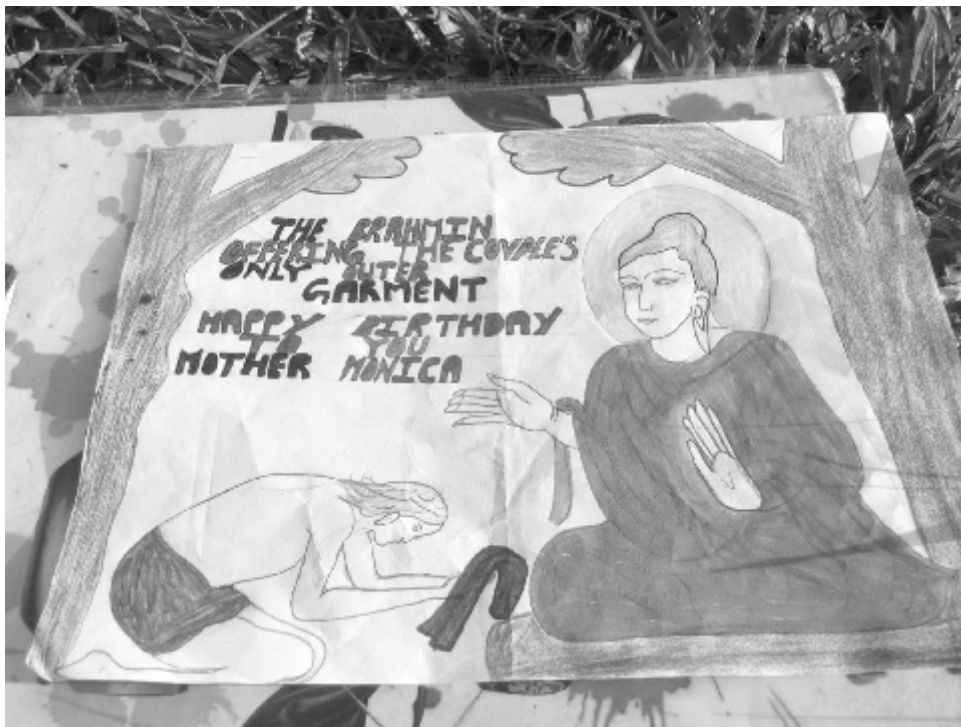 THE BRAHMIN
OFFERING THE COUPLE'S
ONLY OUTER
GARMENT
HAPPY BIRTHDAY
TO YOU
MOTHER MONICA